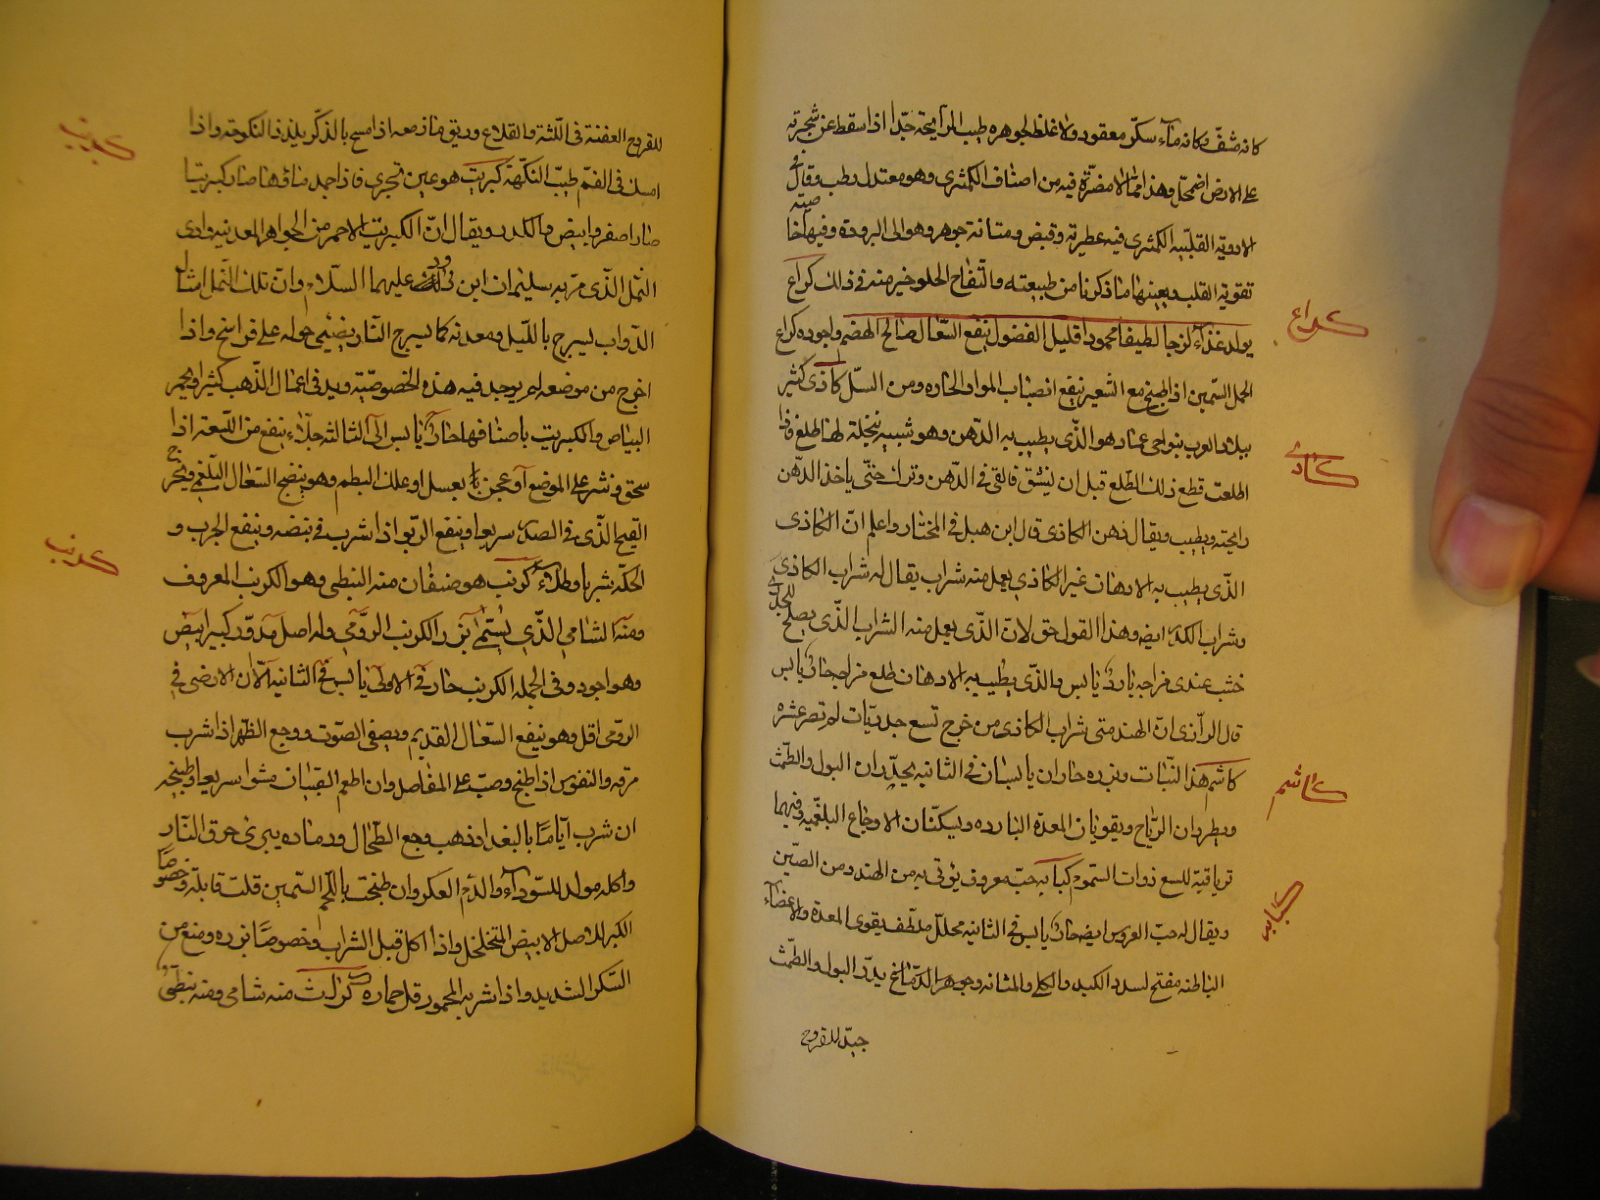 كانه مشفّ وكانه ماء سكّر معقود ولا غلظ لجوهره طيب الرايحة جدّا اذا سقط عن شجرته
على الارض اضمحل وهذا مما لا مضرّة فيه من اصناف الكمثرى وهو معتدل رطب وقال في
الادوية القلبيه الكمثرى فيه عطريه وقبض ومتانة جوهر وهو الى البرودة وفيها خاصيته
تقوية القلب ويعينها ما ذكرنا من طبيعته والتفاح الحلو خير منه في ذلك كراع
يولد غذاء لزجا لطيفا محمودا قليل الفضول ينفع السّعال صالح الهضم واجوده كراع
الحمل السّمين اذا طبخ مع الشعير نفع انصباب المواد الحاره ومن السل كاذى كثير
ببلاد العرب بنواحى عمان وهو الّذى يطيب به الدّهن وهو شبيه بنخلة لها طلع فاذا
اطلعت قطع ذلك الطّلع قبل ان ينشق فالقى في الدّهن وترك حتّى ياخذ الدّهن
رايحته ويطيب ويقال دهن الكاذى قال ابن هبل في المختار واعلم انّ الكاذى
الّذى يطيب به الادهان غير الكاذي يعمل منه شراب يقال له شراب الكاذى
وشراب الكدر ايضه وهذا القول حق لان الّذى يعمل منه الشراب الّذى يصلح للجدرى
خشب عندى مزاجه بارد يابس والذّى يطيب به الادهان طلع مزاجه حار يابس
قال الرازى انّ الهند متى شراب الكاذى من خرج تسع جدريات لم تصر عشره
كاشم هذا النّبات وبزره حاران يابسان في الثانيه يحدّران البول والطّمث
ويطردان الرّياح ويقويان المعدة البارده ويسكنان الاوجاع البلغميه وفيهما
ترياقية للسع ذوات السّموم كبابه حب معروف يؤتى به من الهند ومن الصّين
ويقال له حبّ العروس ايضه حار يابس في الثانيه محلّل ملطف يقوى المعدة والاعضاء
الباطنه مفتح لسدد الكبد والكلى والمثانه وجوهر الدّماغ يدرّ البول والطّمث
جيّد للقروح
كراع
كادى
كاشم
كبابه
للقروح العفنة في اللّثة والقلاع وريق ماذ صعه اذا مسح بالذكر يلذذ النكوحة واذا
امسك في الفم طيّب النّكهة كبريت هو عين تجرى فاذا جمد ماؤها صار كبريتا
صار اصفر وابيض والكدر ويقال انّ الكبريت الاحمر من الجواهر المعدنيه وادى
النّمل الذّى مرّ به سليمان ابن داود عليهما السّلام وان تلك النّمل امثال
الدّواب يسرج بالليل ومعدنه كما يسرج النّار يضئى حوله على فراسخ واذا
اخرج من موضعه لم يوجد فيه هذه الخصوصيّة ويدخل في اعمال الذّهب كثيرا ويحمر
البياض والكبريت باصنافها حار يابس الى الثالثه جلاء ينفع من السّعفة اذا
سحق ونثر على الموضع او عجن بعسل او علك البطم وهو ينضج السّعال البلغمى ويخرج
القيح الّذى في الصّدر سريعا وينفع الرّبو اذا شرب في بيضه وينفع الجرب و
الحكّه شربا وطلاء كرنب هو صنفان منه النبطى وهو الكرنب المعروف
ومنه الشامى الذّي يسمّى بزر الكرنب الرّومى وله اصل مدوّر كبير ابيض
وهو اجود وفى الجمله الكرنب حار في الاولى يابس في الثانيه الّا ان الارضى في
الرّومى اقل وهو ينفع السّعال القديم ويصفى الصّوت ووجع الظّهر اذا شرب
مرقه والنقرس اذا طبخ وصبّ على المفاصل وان اطعم الصّبيان مشوا سريعا وطبيخه
ان شرب ايّاما بالبغدا ذهب وجع الطّحال ورماده يبرئ حرق النّار
واكله مولد للسّوداء والدّم العكر وان طبخت باللّحم السّمين قلت غائلته وخصوصا
الكبر للاصل الابيض المتخلخل واذا اكل قبل الشراب وخصوصا بزره ومنع من
السّكر الشديد واذا شربه المخمور قل خماره كراث منه شامى ومنه نبطى
كبريت
كرنب